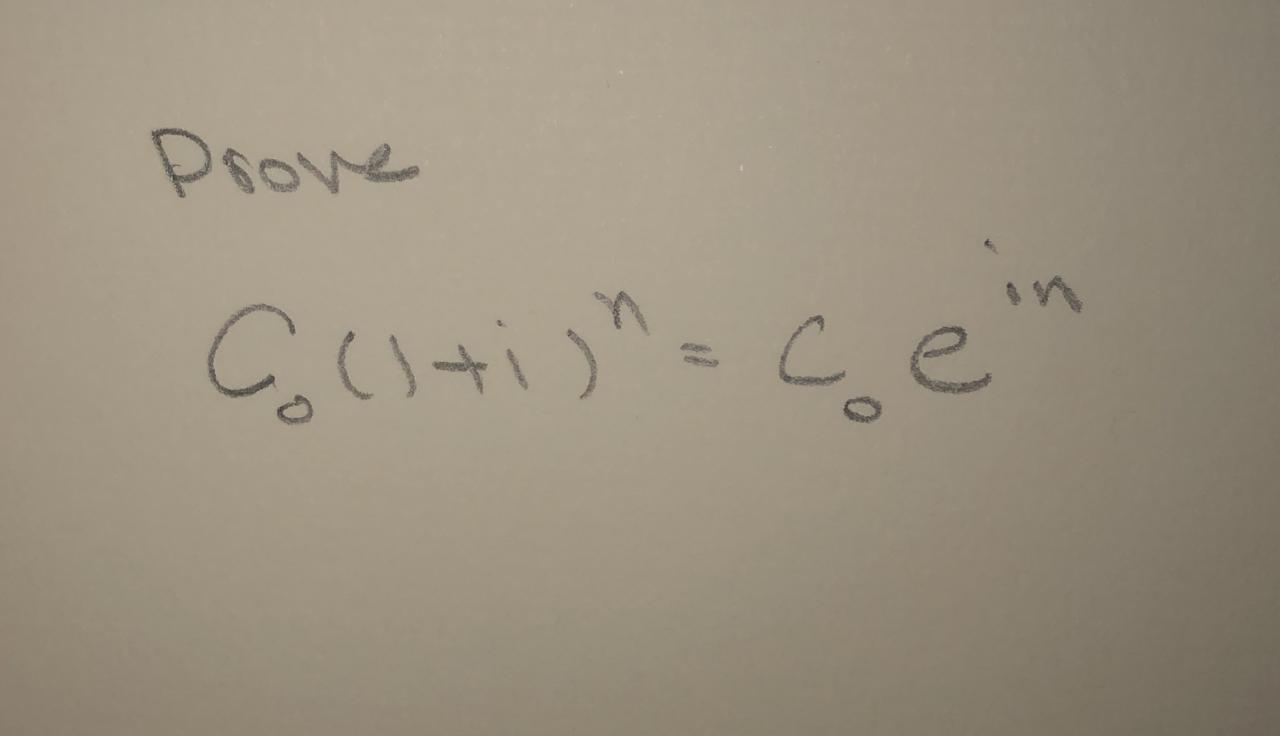 Prove
C₀(1+i)ⁿ = C₀eⁱⁿ